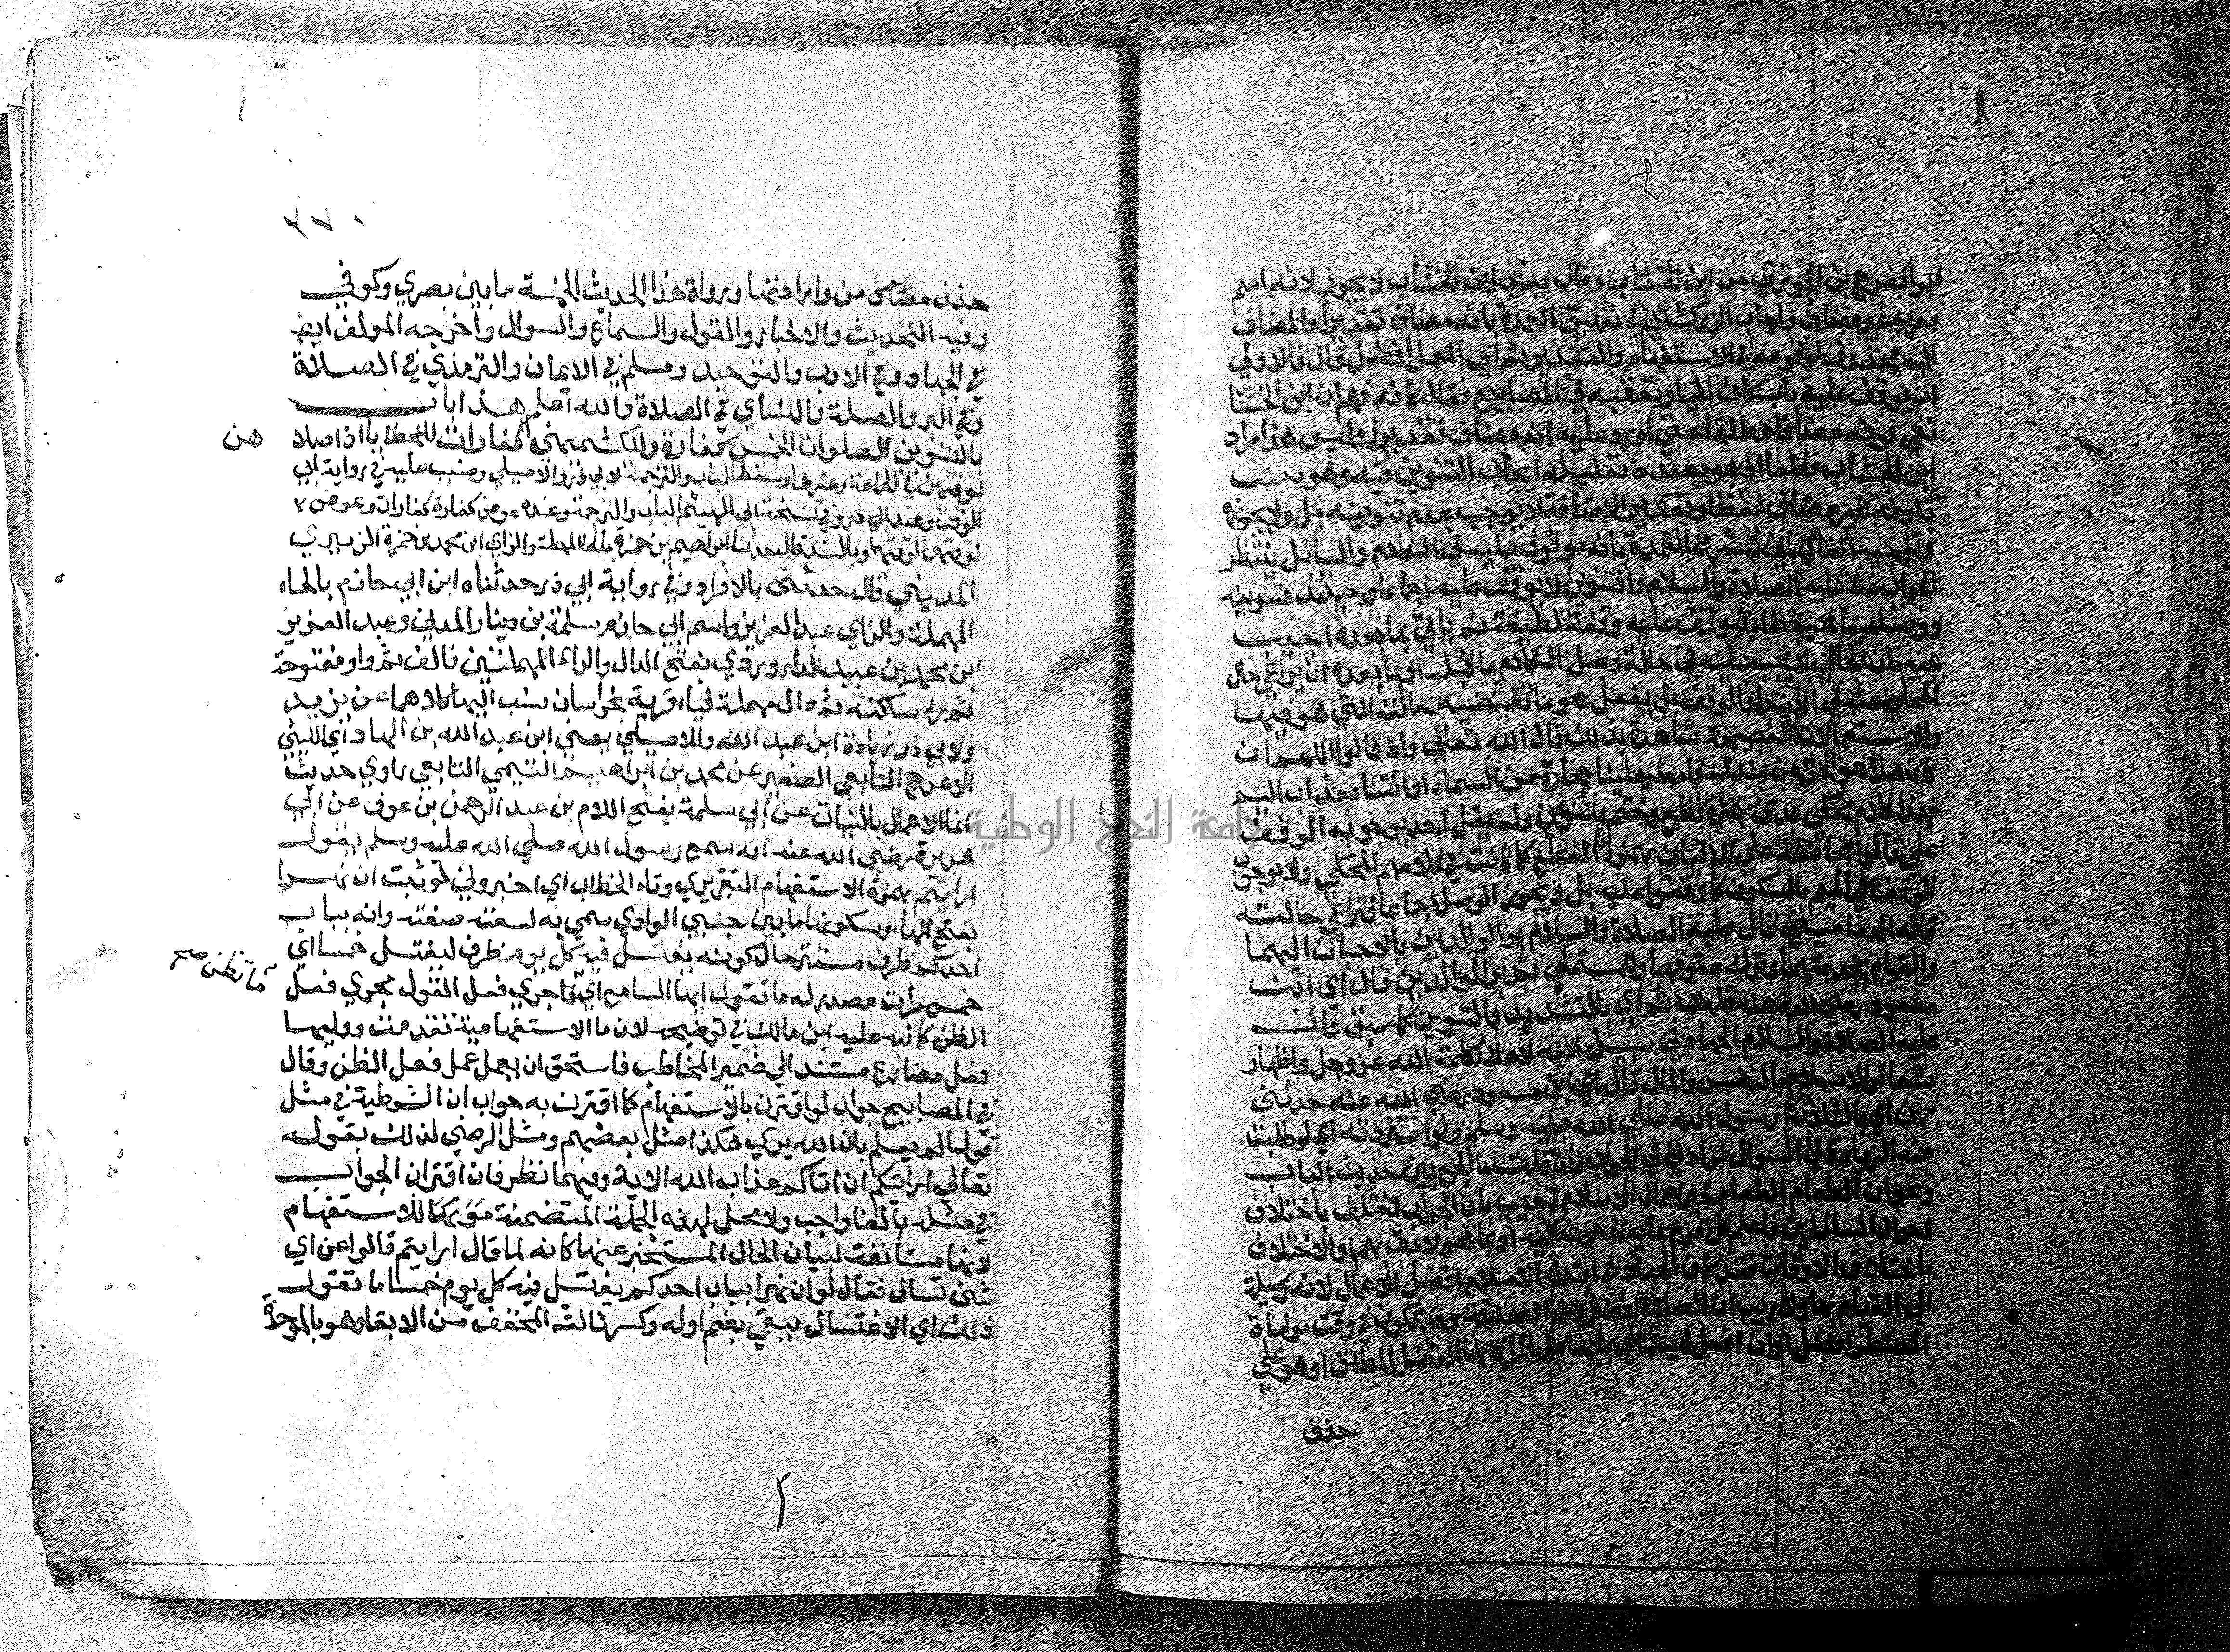 ابو الفرج بن الجوزي من ابن الخشاب وقال يعني ابن الخشاب لا يجوز لانه اسم
معرب غير مضاف واجاب الزركشي في تعليق العمدة بانه مضاف تقديرا والمضاف
اليه محذوف لوقوعه في الاستفهام والتقدير ثم اي العمل افضل قال فالاولي
ان يوقف عليه باسكان اليا وتعقبه في المصابيح فقال كانه فهم ان ابن الخشاب
نفي كونه مضافا مطلقا حتي اورد عليه انه مضاف تقديرا وليس هذا مراد
ابن الخشاب قطعا اذ هو بصدد تعليله ايجاب التنوين فيه وهو يثبت
بكونه غير مضاف لفظا وتقدير الاضافة لا يوجب عدم تنوينه بل ولا يجوزه
وتوجيه الفاكهاني في شرح العمدة بانه موقوف عليه في الكلام والسائل ينتظر
الجواب منه عليه الصلاة والسلام والتنوين لا يوقف عليه اجماعا وحينئذ فتنوينه
ووصله بما بعده خطا فيوقف عليه وقفة لطيفة ثم ياتي بما بعده اجيب
عنه بان الحاكي لا يجب عليه في حالة وصل الكلام بما قبله او بما بعده ان يراعي حال
المحكي عنه في الابتدا والوقف بل يفعل هو ما تقتضيه حالته التي هو فيها
والاستعمالات الفصيحة شاهدة بذلك قال الله تعالي واذ قالوا اللهم ان
كان هذا هو الحق من عندك فامطر علينا حجارة من السماء او ائتنا بعذاب اليم
فهذا كلام محكي بدئ بهمزة قطع وختم بتنوين ولم يقل احد بوجوب الوقف
علي قالوا محافظة علي الاتيان بهمزة القطع كما كانت في كلامهم المحكي ولا بوجوب
الوقف علي الميم بالسكون كما وقفوا عليه بل يجوز الوصل اجماعا فتراعي حالته
قاله الدماميني قال عليه الصلاة والسلام بر الوالدين بالاحسان اليهما
والقيام بخدمتهما وترك عقوقهما وللمستملي ثم بر الوالدين قال اي ابن
مسعود رضي الله عنه قلت ثم اي بالتشديد والتنوين كما سبق قال
عليه الصلاة والسلام الجهاد في سبيل الله لاعلاء كلمة الله عز وجل واظهار
شعائر الاسلام بالنفس والمال قال اي ابن مسعود رضي الله عنه حدثني
بهن اي بالثلاثة رسول الله صلي الله عليه وسلم ولو استزدته اي لو طلبت
منه الزيادة في السوال لزادني في الجواب فان قلت ما الجمع بين حديث الباب
ونحو ان اطعام الطعام خير اعمال الاسلام اجيب بان الجواب اختلف باختلاف
احوال السائلين فاعلم كل قوم بما يحتاجون اليه او بما هو لائق بهم او الاختلاف
باختلاف الاوقات فقد كان الجهاد في ابتداء الاسلام افضل الاعمال لانه وسيلة
الي القيام بها ولا ريب ان الصلاة افضل من الصدقة وقد تكون في وقت مواساة
المضطر افضل او ان افعل ليست علي بابها بل المراد بها الفضل المطلق او هو علي
حذف
٣٧٠
حذف مضاف من وارادتها ورواة هذا الحديث الخمسة ما بين بصري وكوفي
وفيه التحديث والاخبار والقول والسماع والسوال واخرجه المولف ايض
في الجهاد وفي الادب والتوحيد ومسلم في الايمان والترمذي في الصلاة
وفي البر والصلة والنساي في الصلاة والله اعلم هذا باب
بالتنوين الصلوات الخمس كفارة وللكشميهني كفارات للخطايا اذا صلا
هن
لوقتهن في الجماعة وغيرها وسقط الباب والترجمة لابي ذر والاصيلي وضبب عليه في رواية ابي
الوقت وعند ابي ذر وفي نسخة ابي الهيثم الباب والترجمة وعنده عوض كفارة كفارات وعوض
لوقتهن لوقتها وبالسند قال حدثنا ابراهيم بن حمزة بالحا المهملة والزاي ابن محمد بن حمزة الزبيري
المديني قال حدثني بالافراد وفي رواية ابي ذر حدثنا ابن ابي حازم بالحاء
المهملة والزاي عبد العزيز واسم ابي حازم سلمة بن دينار المدني وعبد العزيز
ابن محمد بن عبيد الدراوردي بفتح الدال والراء المهملتين فالف ثم واو مفتوحة
ثم راء ساكنة ثم دال مهملة فياء قرية بخراسان نسب اليها كلاهما عن يزيد
ولابي ذر زيادة ابن عبد الله وللاصيلي يعني ابن عبد الله بن الهاد اي الليثي
الاعرج التابعي الصغير عن محمد بن ابراهيم التيمي التابعي راوي حديث
انما الاعمال بالنيات عن ابي سلمة بفتح اللام بن عبد الرحمن بن عوف عن ابي
هريرة رضي الله عنه انه سمع رسول الله صلي الله عليه وسلم يقول
ارايتم بهمزة الاستفهام التقريري وتاء الخطاب اي اخبروني لو ثبت ان نهرا
بفتح الهاء وسكونها ما بين جنبي الوادي سمي به لسعته صفته وانه بباب
احدكم ظرف مستقر حال كونه يغتسل فيه كل يوم ظرف ليغتسل خمسا اي
خمس مرات مصدر له ما تقول ايها السامع اي فاجري فعل القول مجري فعل
ما تظن صح
الظن كما نبه عليه ابن مالك في توضيحه لان ما الاستفهامية تقدمت ووليها
فعل مضارع مستند الي ضمير المخاطب فاستحق ان يعمل عمل فعل الظن وقال
في المصابيح جواب لو اقترن بالاستفهام كما اقترن به جواب ان الشرطية في مثل
قوله الم يعلم بان الله يري هكذا مثل بعضهم ومثل الرضي لذلك بقوله
تعالي ارايتكم ان اتاكم عذاب الله الاية وفيهما نظر فان اقتران الجواب
في مثله بالفا واجب ولا محل لهذه الجملة المتضمنة للاستفهام
لانها مستانفة لبيان الحال المستخبر عنها كانه لما قال ارايتم قالوا عن اي
شئ تسال فقال لو ان نهرا بباب احدكم يغتسل فيه كل يوم خمسا ما تقول
ذلك اي الاغتسال يبقي بضم اوله وكسر ثالثه المخفف من الابقاء وهو بالموحدة
جامعة النجاح الوطنية